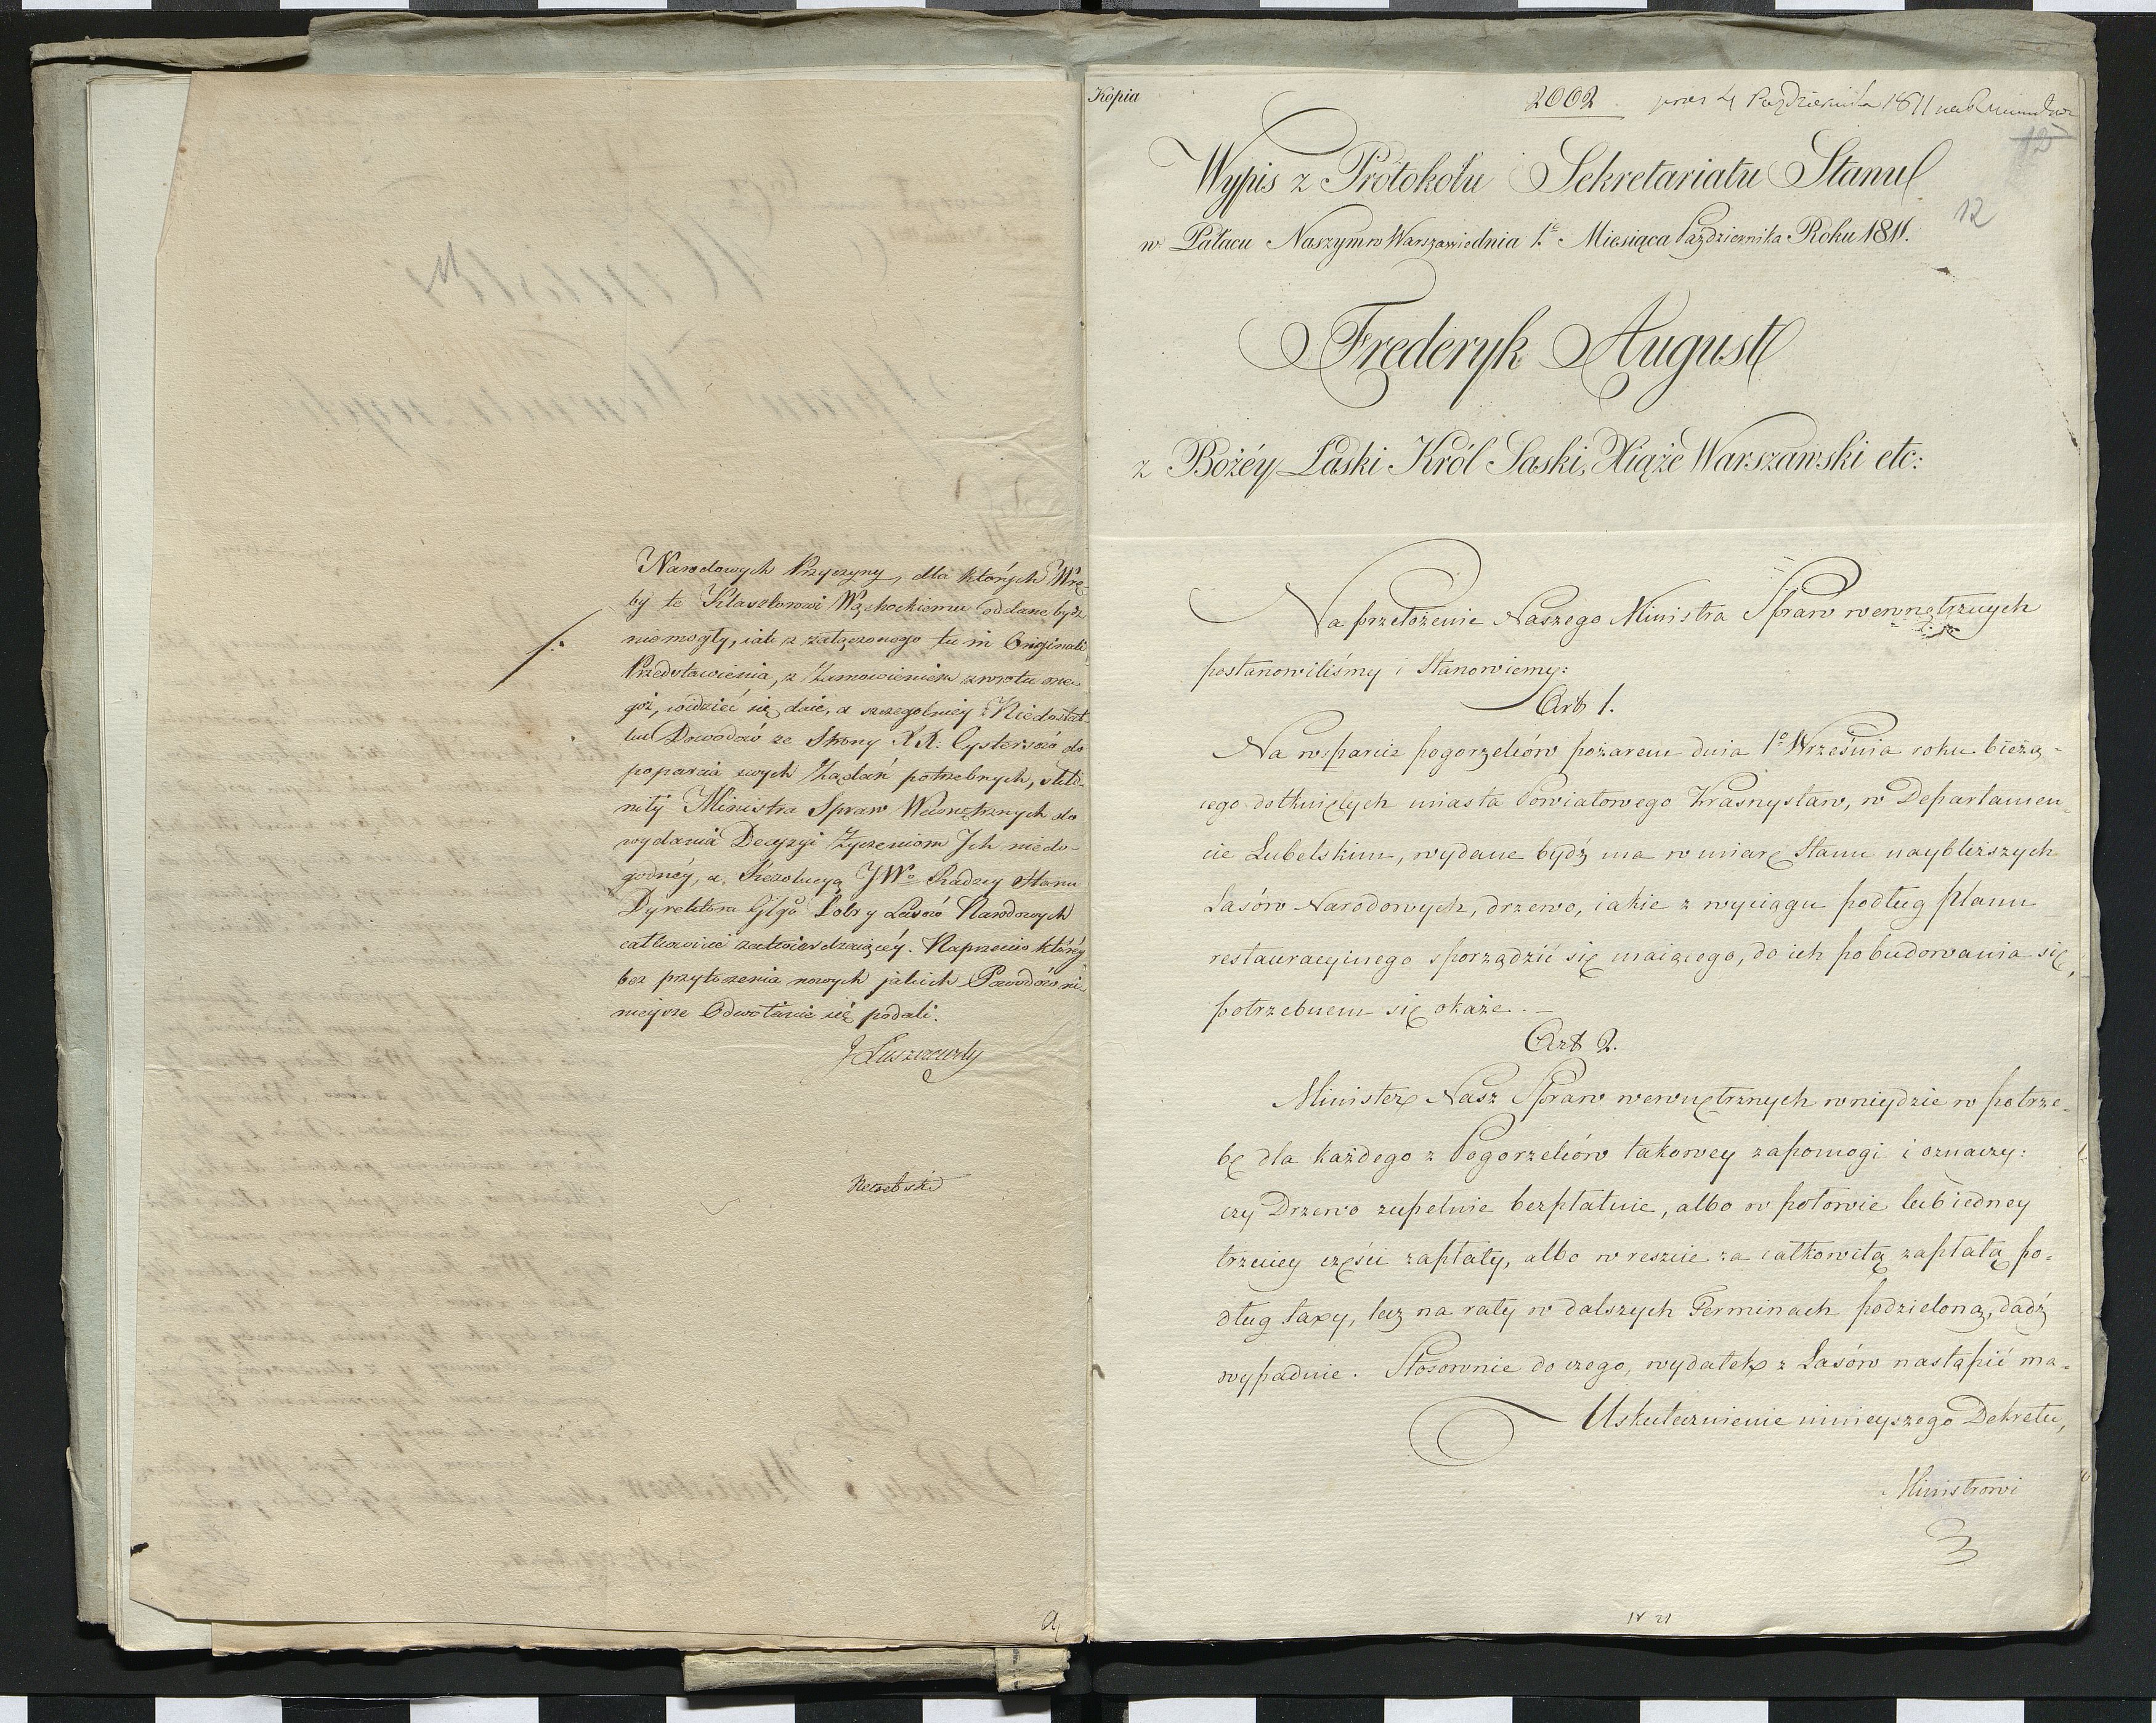 Narodowych Przyczyny, dla których Wrę
by te Klasztorowi Wąchockiemu oddane bydź
niemogły, iak z załączonego tu in Originali
Przedstawienia, z Zamowieniem zwrotu one
goż, widzieć się daie, a szczegolniey Niedostat
ku Dowodów ze Strony XX. Cystersów do
poparcia swych Żądań potrzebnych, skło-
niły Ministra Spraw Wewnętrznych do
wydania Decyzyi Życzeniom Ich niedo-
godnéy, a, Rezolucyą JWo Radzcy Stanu
Dyrektora Glgo Dobr y Lasów Narodowych
całkowicie zatwierdzaiącéy. Naprzeciw któréy
bez przytoczenia nowych jakich Powodów ni-
nieysze Odwołanie się podali.
J Łuszczewsky
a
Kopia
2002 4 Października 1811
12
12
Wypis z Protokołu Sekretariatu Stanu
w Pałacu Naszym w Warszawie dnia 1. Miesiąca Października Roku 1811.
Frederyk August
z Bożéy Łaski Król Saski, Xiąże Warszawski etc:
Na przełożenie Naszego Ministra Spraw wewnętrznych
postanowiliśmy i Stanowiemy:
Art 1.
Na wsparcie pogorzelców pożarem dnia 1o Września roku bieżą-
cego dotkniętych miasta Powiatowego Krasnystaw, w Departamen-
cie Lubelskim, wydane bydź ma w miarę Stanu naybliższych
Lasów Narodowych, drzewo, iakie z wyciągu podług planu
restauracyinego sporządzić się maiącego, do ich pobudowania się,
potrzebnem się okaże. -
Art 2.
Minister Nasz Spraw wewnętrznych wniydzie w potrze-
bę dla każdego z Pogorzelców takowey zapomogi i oznaczy:
czy Drzewo zupełnie bezpłatnie, albo w połowie lub iedney
trzeciey części zapłaty, albo w reszcie za całkowitą zapłatą po-
dług taxy, lecz na raty w dalszych Terminach podzieloną, dadź
wypadnie. Stosownie do czego, wydatek z Lasów nastąpić ma.
Uskutecznienie ninieyszego Dekretu,
Ministrowi